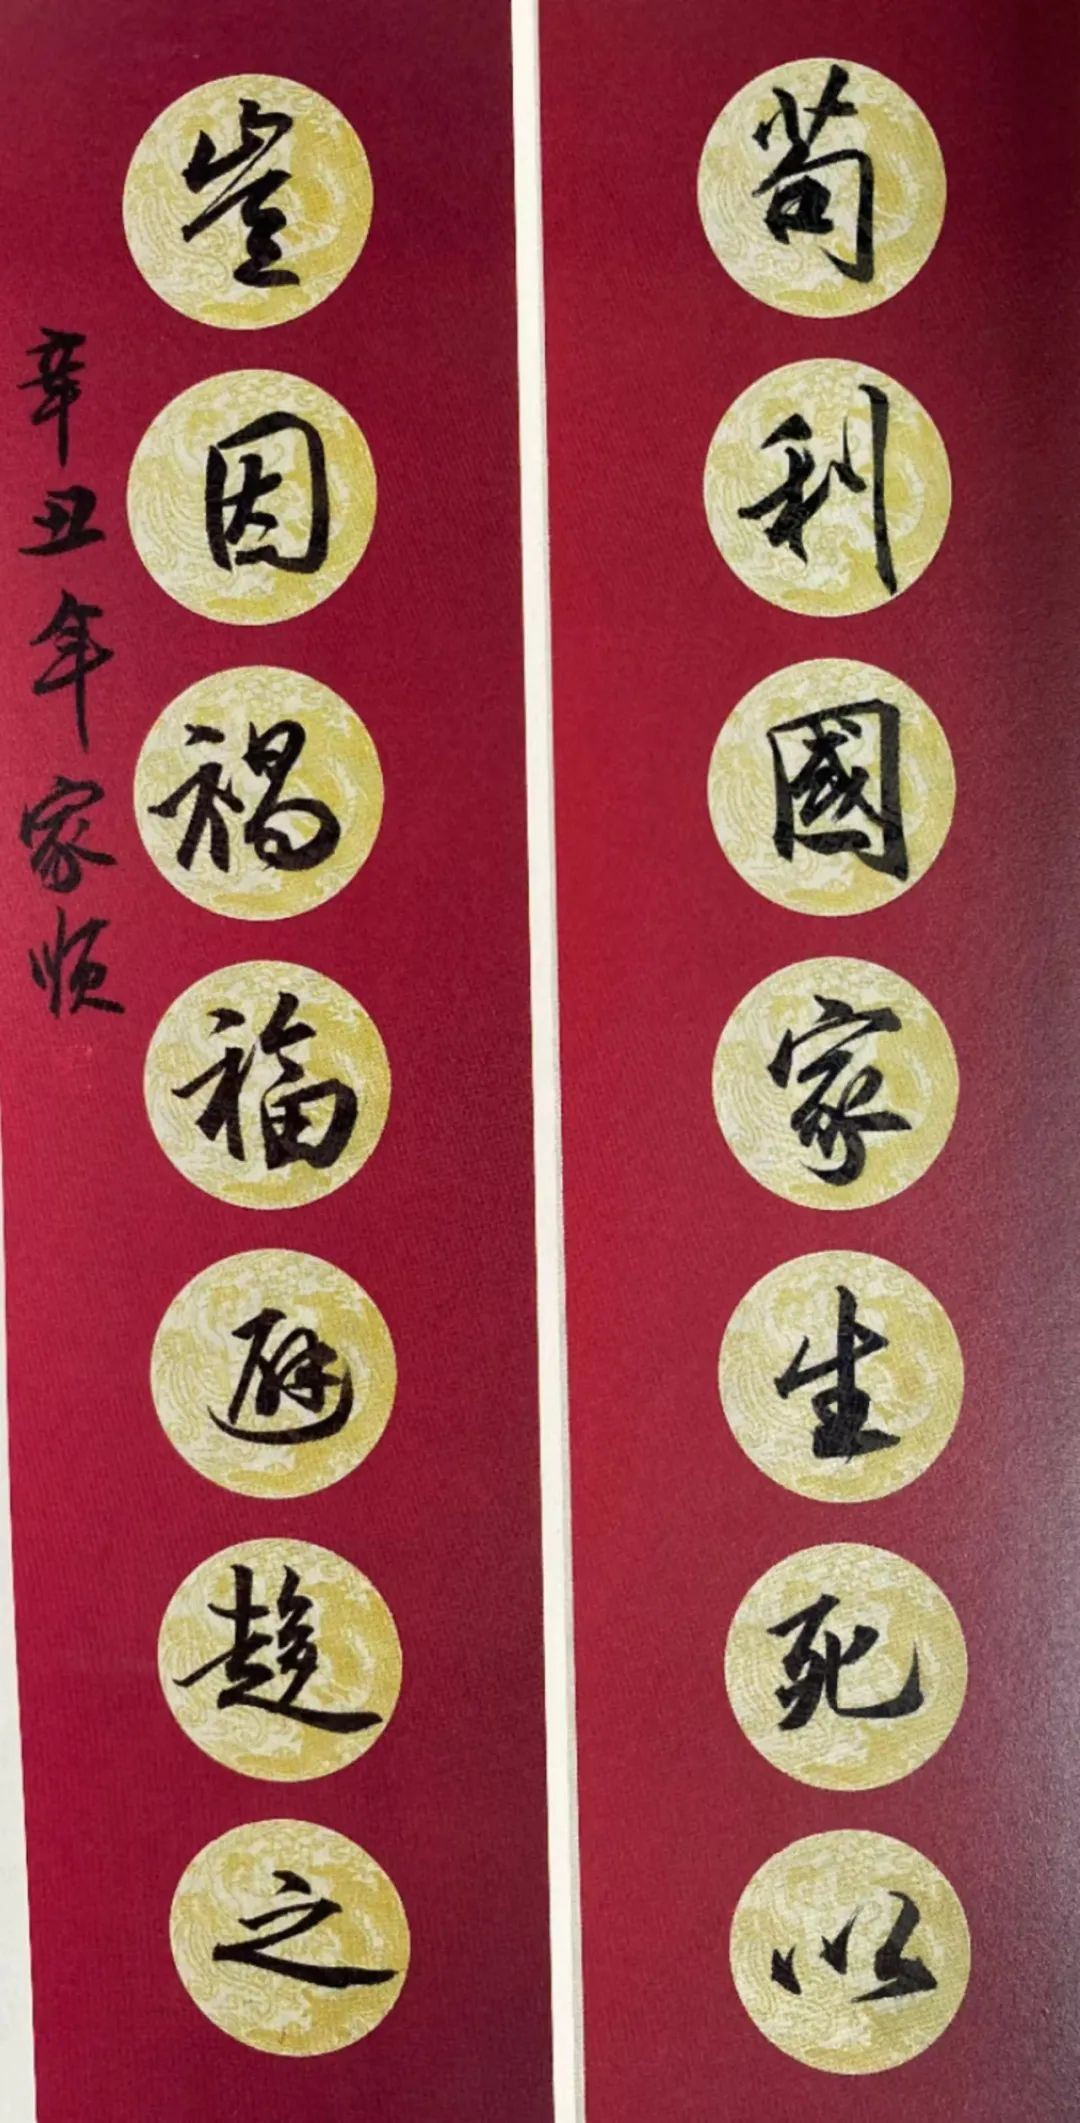 苟利國家生死以
豈因禍福避趨之
辛丑年家順